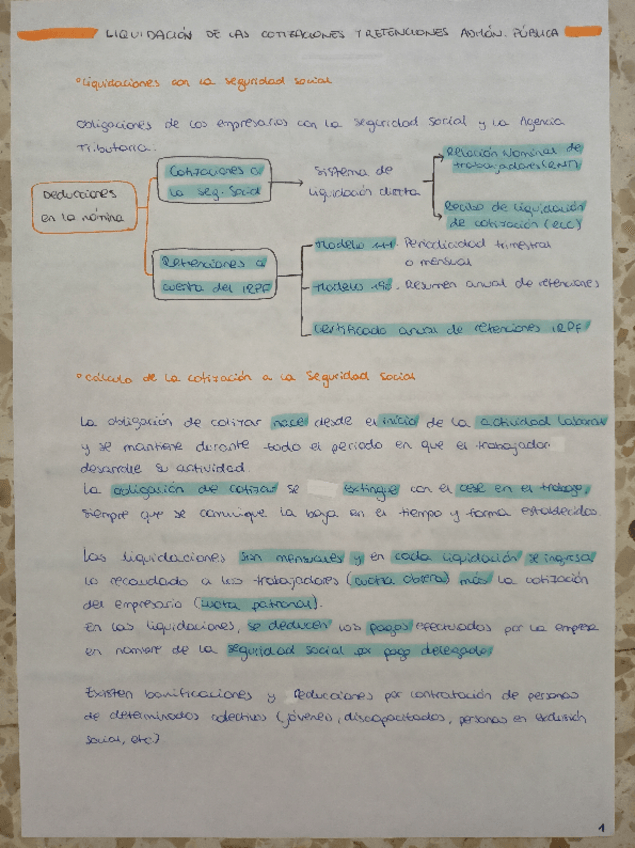 LIQUIDACIÓN DE LAS COTIZACIONES Y RETENCIONES ADMÓN. PÚBLICA
° Liquidaciones con la seguridad social
Obligaciones de los empresarios con la seguridad social y la Agencia
Tributaria.
Deducciones
en la nómina
Cotizaciones a
la seg. Social
Sistema de
liquidación directa
Relación Nominal de
trabajadores (RNT)
Recibo de liquidación
de cotización (RLC)
Retenciones a
cuenta del IRPF
Modelo 111. Periodicidad trimestral
o mensual
Modelo 190. Resumen anual de retenciones
Certificado anual de retenciones IRPF
° Cálculo de la cotización a la Seguridad Social
La obligación de cotizar nace desde el inicio de la actividad laboral
y se mantiene durante todo el periodo en que el trabajador
desarrolle su actividad.
La obligación de cotizar se extingue con el cese en el trabajo,
siempre que se comunique la baja en el tiempo y forma establecidos.
Las liquidaciones son mensuales y en cada liquidación se ingresa
lo recaudado a los trabajadores (cuota obrera) más la cotización
del empresario (cuota patronal).
En las liquidaciones, se deducen los pagos efectuados por la empresa
en nombre de la seguridad social por pago delegado
Existen bonificaciones y reducciones por contratación de personas
de determinados colectivos (jóvenes, discapacitados, personas en exclusión
social, etc)
1